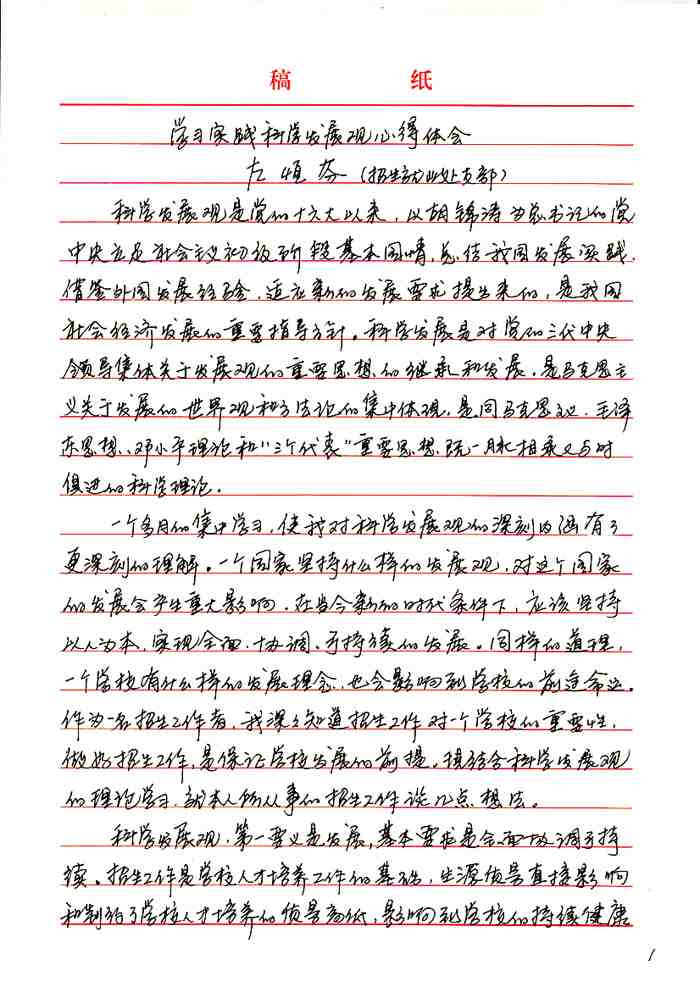 稿 纸
学习实践科学发展观心得体会
左 恒 芬 (招生就业处支部)
科学发展观是党的十六大以来,以胡锦涛为总书记的党
中央立足社会主义初级阶段基本国情,总结我国发展实践,
借鉴外国发展经验,适应新的发展要求提出来的,是我国
社会经济发展的重要指导方针。科学发展是对党的三代中央
领导集体关于发展观的重要思想的继承和发展,是马克思主
义关于发展的世界观和方法论的集中体现,是同马克思主义、毛泽
东思想、邓小平理论和“三个代表”重要思想既一脉相承又与时
俱进的科学理论。
一个多月的集中学习,使我对科学发展观的深刻内涵有了
更深刻的理解。一个国家坚持什么样的发展观,对这个国家
的发展会产生重大影响,在当今新的时代条件下,应该坚持
以人为本,实现全面、协调、可持续的发展。同样的道理,
一个学校有什么样的发展理念,也会影响到学校的前途命运。
作为一名招生工作者,我深深知道招生工作对一个学校的重要性,
做好招生工作,是保证学校发展的前提。现结合科学发展观
的理论学习,就本人所从事的招生工作谈几点想法。
科学发展观,第一要义是发展,基本要求是全面协调可持
续。招生工作是学校人才培养工作的基础,生源质量直接影响
和制约了学校人才培养的质量高低,影响到学校的持续健康
1